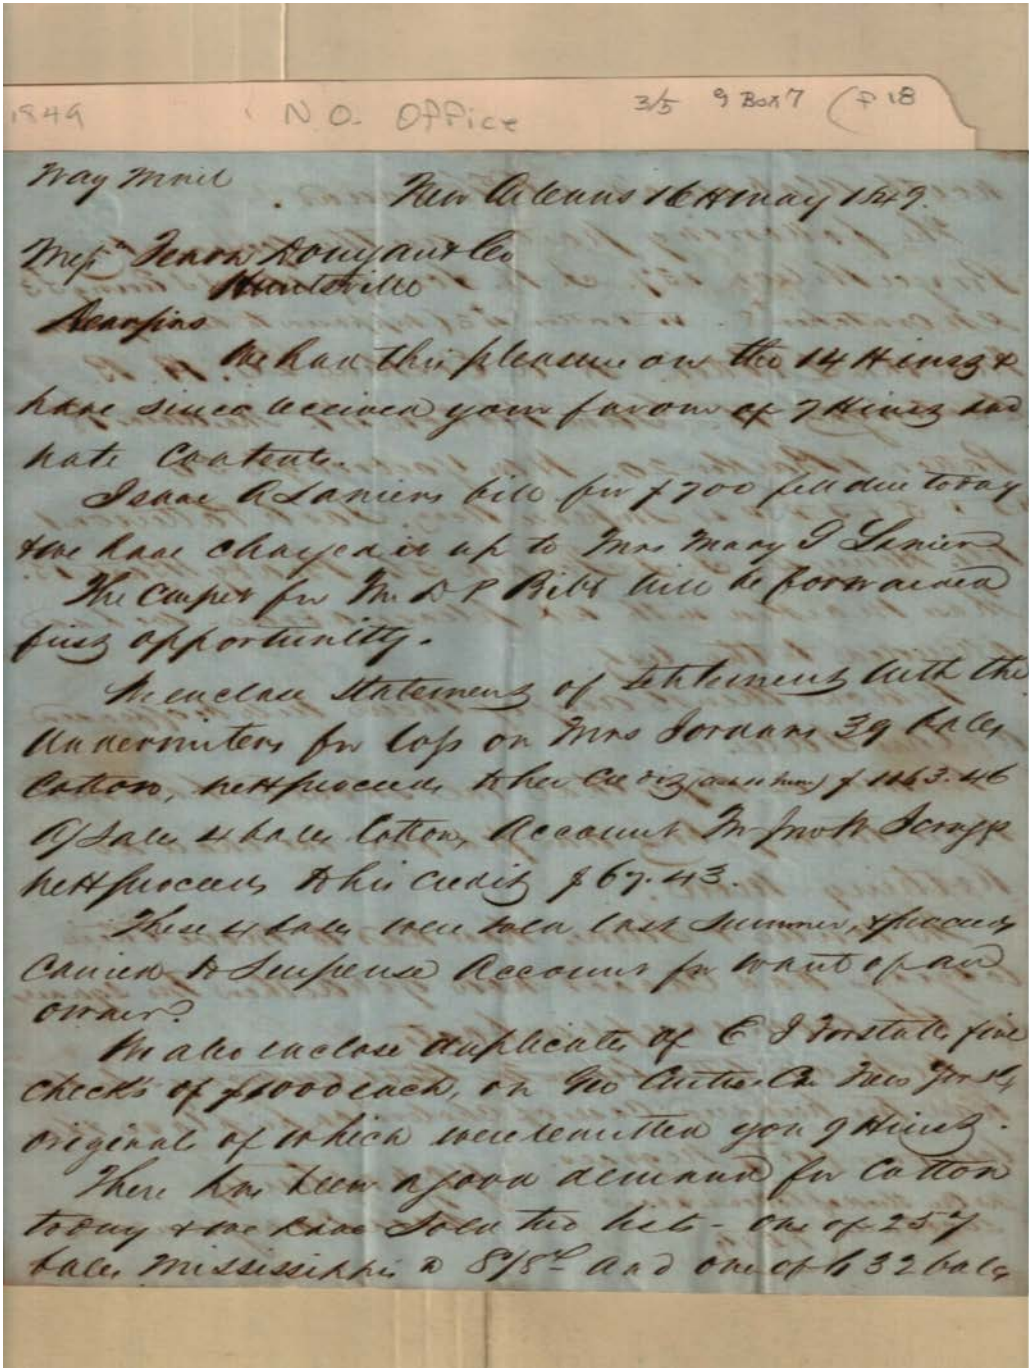 1849 N.O. Office 3/5 9 Box 7 (P 18
Way Mail
New Orleans 16th May 1849.
Messrs Fearn Donegan & Co
Huntsville
Dear Sirs
We had this pleasure on the 14th inst &
have since received your favour of 7th inst and
note contents.
Isaac A Laniers bill for $700 fell due today
& we have charged it up to Mrs Mary I Lanier
The Carpet for Mr D P Bibb will be forwarded
first opportunity.
We enclose statement of settlement with the
Underwriters for loss on Mrs Jordans 39 bales
Cotton, nett proceeds to her Credit $1063.46
A/Sales 4 bales Cotton, Account Mr Jno W Scruggs
nett proceeds to his Credit $67.43.
These 4 bales were sold last Summer, & proceeds
Carried to Suspense Account for want of an
owner.
We also enclose duplicates of E J Forstall five
checks of $1000 each, on New York,
original of which were remitted you 9th inst.
There has been a good demand for Cotton
today & we have sold two lists - one of 257
bales Mississippi @ and one of 632 bales